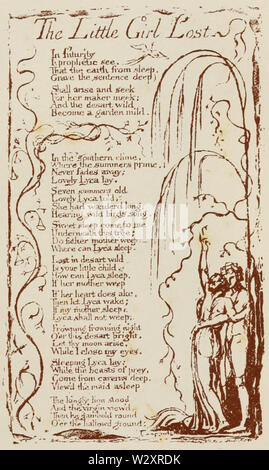 The Little Girl Lost
In futurity
I prophetic see,
That the earth from sleep,
(Grave the sentence deep)
Shall arise and seek
For her maker meek:
And the desart wild
Become a garden mild.
In the southern clime,
Where the summers prime,
Never fades away;
Lovely Lyca lay.
Seven summers old
Lovely Lyca told,
She had wanderd long,
Hearing wild birds song.
Sweet sleep come to me
Underneath this tree;
Do father, mother weep,
Where can Lyca sleep.
Lost in desart wild
Is your little child.
How can Lyca sleep,
If her mother weep.
If her heart does ake,
Then let Lyca wake;
If my mother sleep,
Lyca shall not weep.
Frowning frowning night,
O'er this desart bright,
Let thy moon arise,
While I close my eyes.
Sleeping Lyca lay:
While the beasts of prey,
Come from caverns deep,
View'd the maid asleep
The kingly lion stood
And the virgin view'd,
Then he gambold round
O'er the hallowd ground;
alamy
W2XRDK